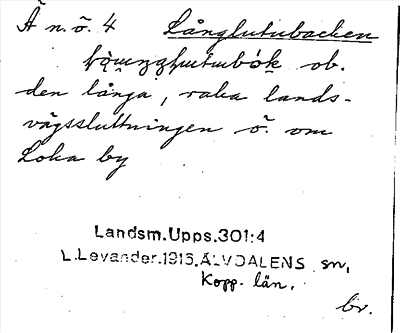 Ä n. ö. 4 Långlutubacken
ob.
den långa, raka lands-
vägssluttningen ö. om
Loka by
Landsm.Upps.301:4
L.Levander.1915.ÄLVDALENS sn,
Kopp. län.
br.